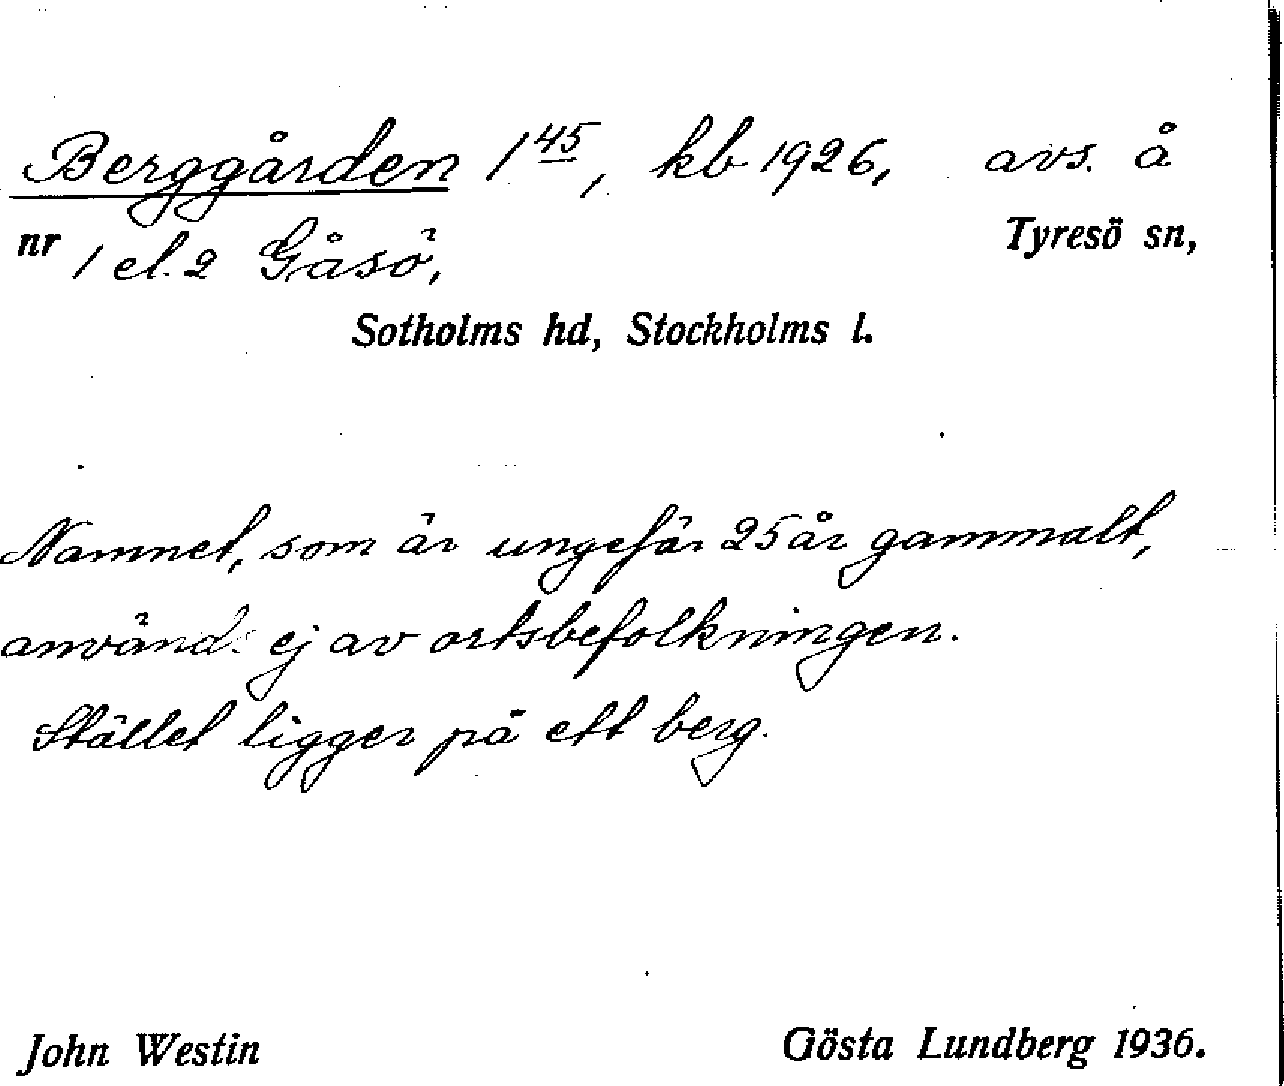 Berggården 1 45, kb 1926, avs. å
nr 1 el. 2 Gåsö, Tyresö sn,
Sotholms hd, Stockholms l.
Namnet, som är ungefär 25 år gammalt,
använd: ej av ortsbefolkningen.
Stället ligger på ett berg.
John Westin Gösta Lundberg 1936.